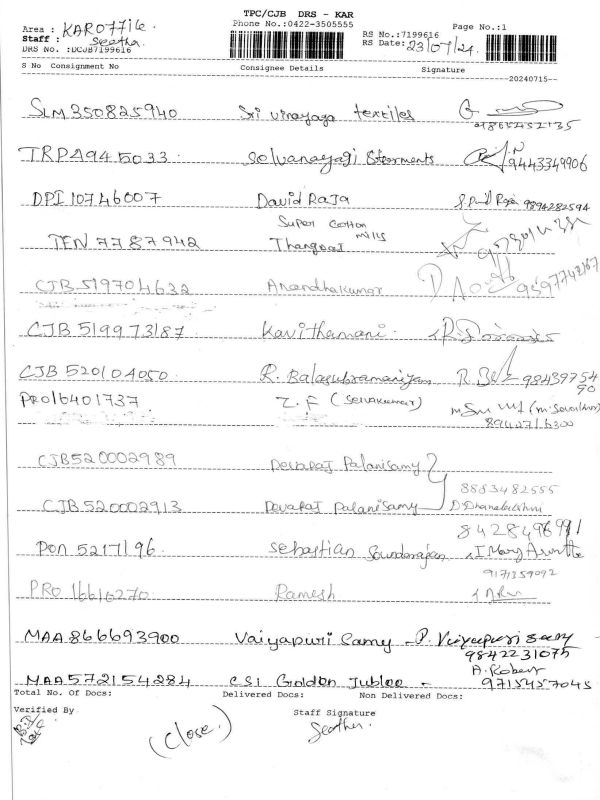 TPC/CJB DRS - KAR
Area : KAR077IG Phone No.:0422-3505555 RS No.:7199616 Page No.:1
Staff : Seetha. RS Date: 23/07/24.
DRS No. :DCJB7199616
S No Consignment No Consignee Details Signature
20240715--
SLM350825940 Sri vinayaga textiles
9865452135
TRPA945033 Selvanayagi 9443349906
DPI 10746007 David Raja 9894282594
Super Cotton Mills
TEN 7787942 Thangaraj
CJB 519704632 Anandhakumar 9597742167
CJB 519973187 Kavithamani.
CJB 520104050 R. Balasubramaniyam 98439754
90
PRO16401737 Z.F (Selvakumar)
8942716300
CJB520002989 Devaraj Palanisamy
8883482555
CJB 520002913 Devaraj Palanisamy D. Dhanalakshmi
PON 5217196 Sebastian Soundarajan
9171359092
PRO 16616270 Ramesh
MAA 866693900 Vaiyapuri Samy - P. Vaiyapuri Samy
9842231075
A. Robert
MAA572154284 CSI Golden Jubloe - 9715457045
Total No. Of Docs: Delivered Docs: Non Delivered Docs:
Verified By Staff Signature
(Close.) Seetha.